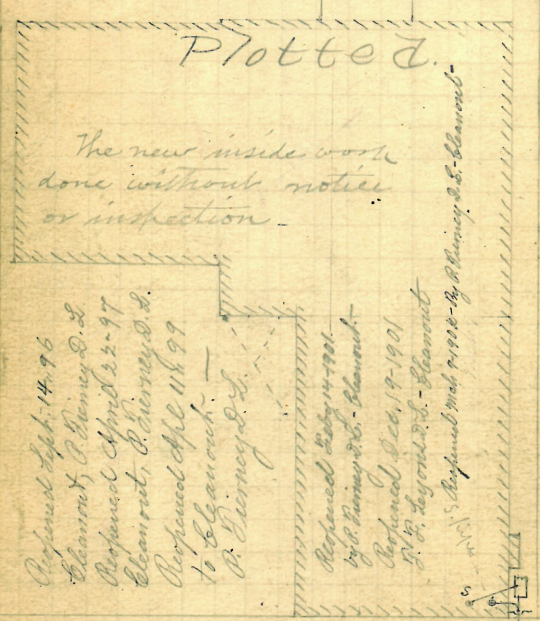 Plotted.
The new inside work
done without notice
or inspection -
Reopened Sept. 14, 96
Cleanout, P. Tierney D.L.
Reopened April 22-97
Cleanout, P. Tierney D.L.
Reopened Apl 11, 99
to Cleanout -
P. Tierney D.L.
Reopened Feby 14-1901
by P. Tierney D.L. - Cleanout -
Reopened Dec. 19-1901
Lyons D.L. - Cleanout
Reopened Mch 9 1902 - By P. Tierney D.L. - Cleanout -
S